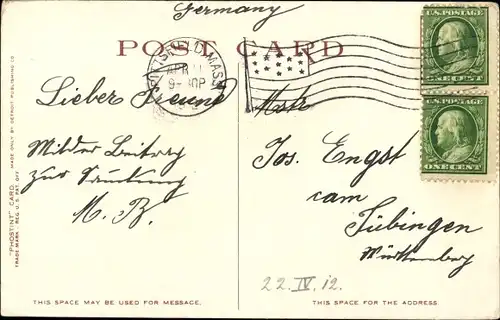 Germany
POST CARD
PITTSFIELD, MASS.
APR 11
9-30P
U.S. POSTAGE
ONE CENT
U.S. POSTAGE
ONE CENT
Lieber Freund
Milder Beitrag
zur Samlung
M. B.
Jos. Engst
cam
Tübingen
Württemberg
22. IV. 12.
"PHOSTINT" CARD. MADE ONLY BY DETROIT PUBLISHING CO.
TRADE MARK, REG. U.S. PAT. OFF.
THIS SPACE MAY BE USED FOR MESSAGE.
THIS SPACE FOR THE ADDRESS